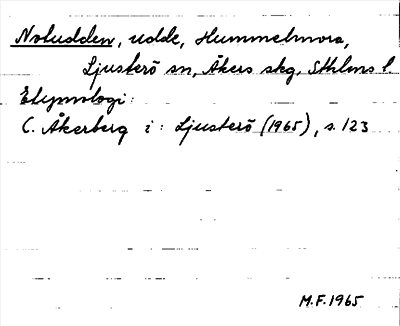 Notudden, udde, Hummelmora,
Ljusterö sn, Åkers skg, Sthlms l.
Etymologi:
C. Åkerberg i: Ljusterö (1965), s. 123
M.F. 1965